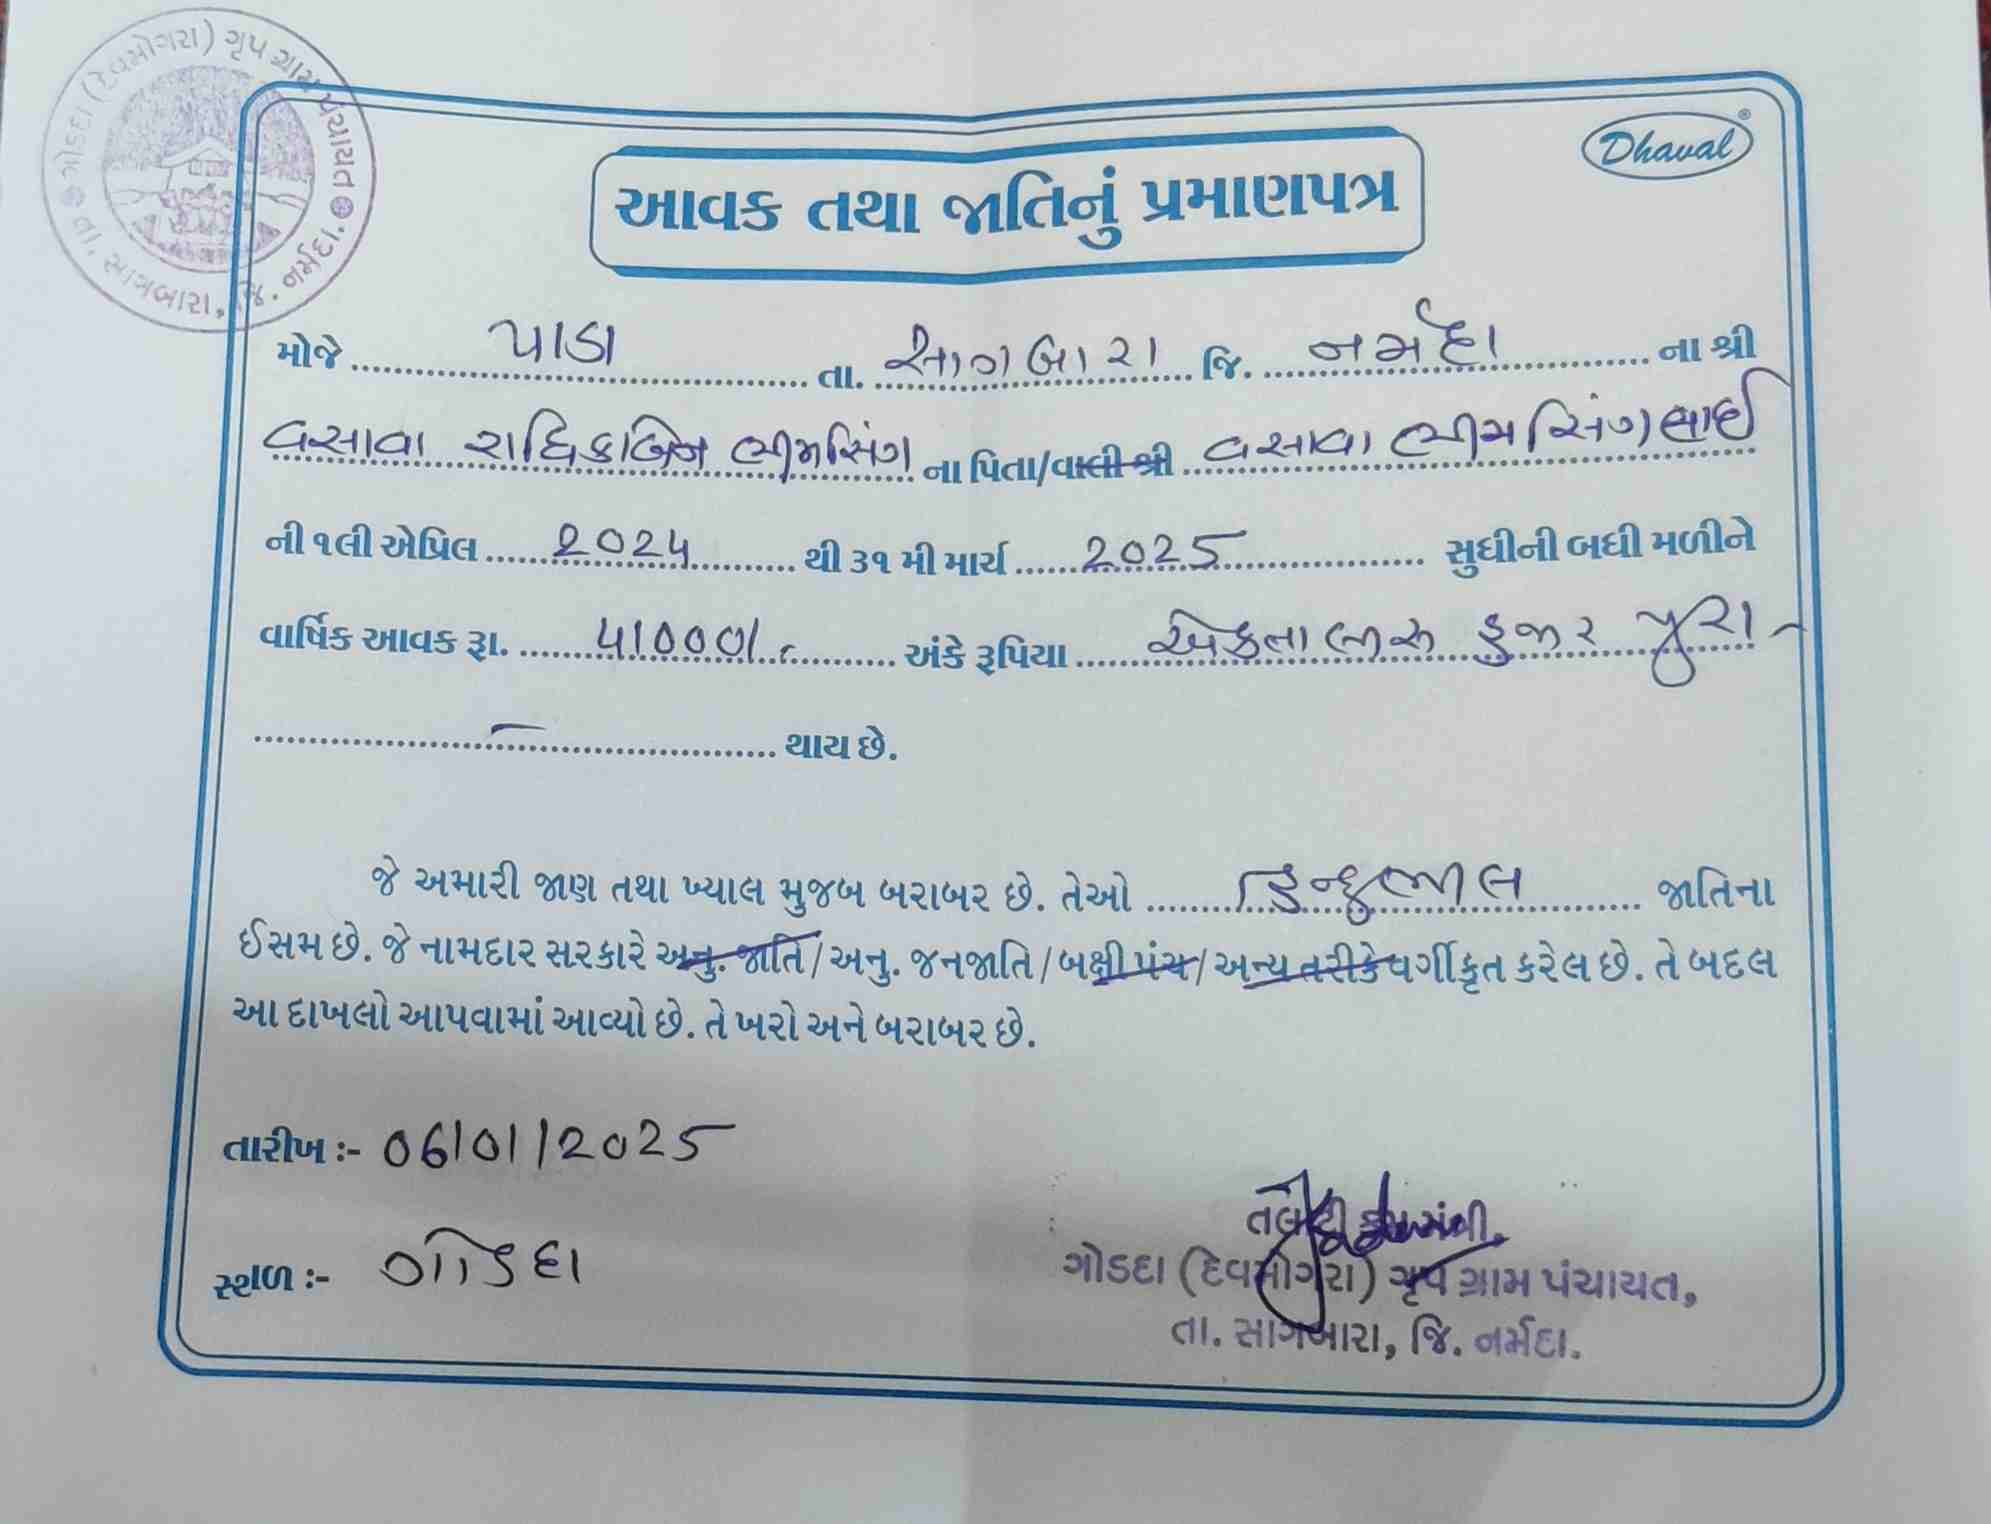 ગોડદા (દેવમોગરા) ગૃપ ગ્રામ પંચાયત
તા. સાગબારા, જિ. નર્મદા.
Dhaval®
આવક તથા જાતિનું પ્રમાણપત્ર
મોજે પાડા તા. સાગબારા જિ. નર્મદા ના શ્રી
વસાવા રાધિકાબેન ભીમસિંગ ના પિતા/વાલી શ્રી વસાવા ભીમસિંગભાઈ
ની ૧લી એપ્રિલ 2024 થી ૩૧ મી માર્ચ 2025 સુધીની બધી મળીને
વાર્ષિક આવક રૂા. 41000/- અંકે રૂપિયા એકતાલીસ હજાર પુરા -
થાય છે.
જે અમારી જાણ તથા ખ્યાલ મુજબ બરાબર છે. તેઓ હિન્દુભીલ જાતિના
ઈસમ છે. જે નામદાર સરકારે અનુ. જાતિ/અનુ. જનજાતિ/બક્ષીપંચ/અન્ય તરીકે વર્ગીકૃત કરેલ છે. તે બદલ
આ દાખલો આપવામાં આવ્યો છે. તે ખરો અને બરાબર છે.
તારીખ :- 06/01/2025
સ્થળ :- ગોડદા
તલાટી કમ મંત્રી.
ગોડદા (દેવમોગરા) ગૃપ ગ્રામ પંચાયત,
તા. સાગબારા, જિ. નર્મદા.